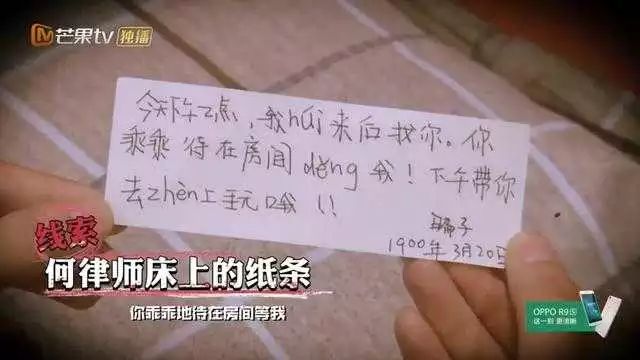 芒果tv 独播
今天下午2点，我huí来后找你。你
乖乖待在房间děng我！下午带你
去zhèn上玩哦！！
1900年3月20日
线索
何律师床上的纸条
你乖乖地待在房间等我
OPPO R9s
这一刻 更清晰